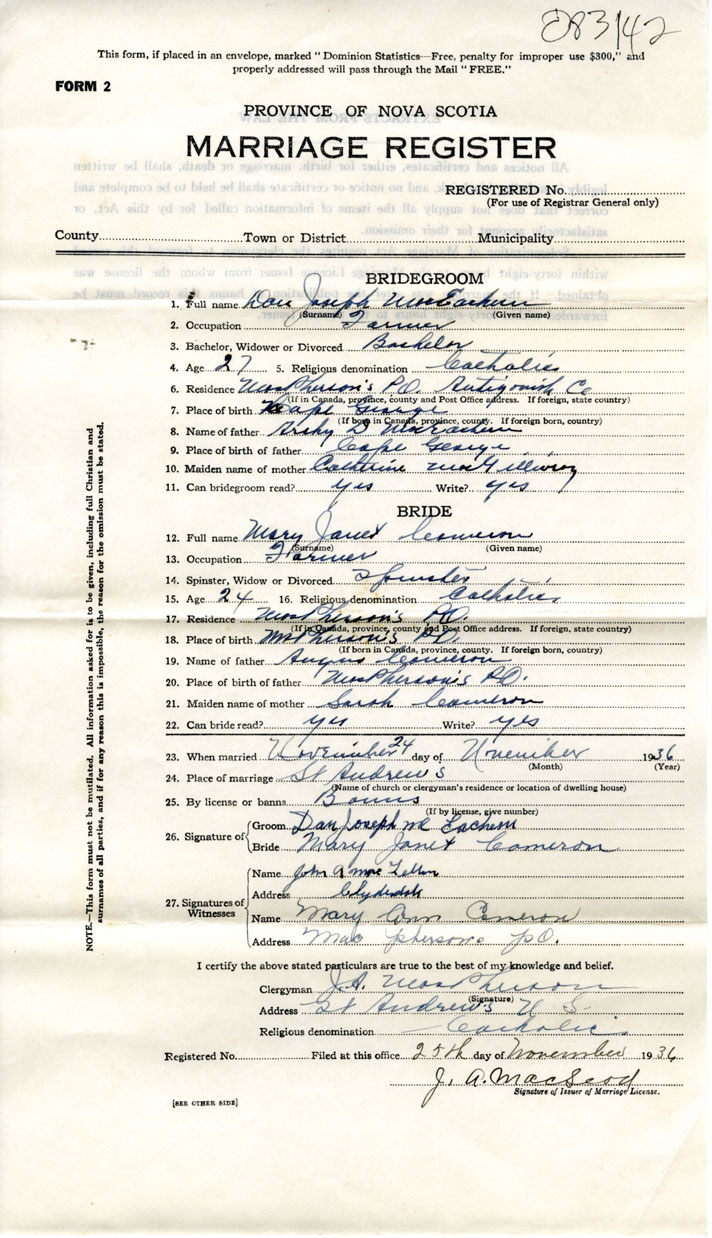 283/42
This form, if placed in an envelope, marked "Dominion Statistics—Free, penalty for improper use $300," and
properly addressed will pass through the Mail "FREE."
FORM 2
PROVINCE OF NOVA SCOTIA
MARRIAGE REGISTER
REGISTERED No.
(For use of Registrar General only)
County Town or District Municipality
BRIDEGROOM
1. Full name Dan Joseph MacEachern
(Surname) (Given name)
2. Occupation Farmer
3. Bachelor, Widower or Divorced Bachelor
4. Age 27 5. Religious denomination Catholic
6. Residence MacPherson's P.O. Antigonish Co
(If in Canada, province, county and Post Office address. If foreign, state country)
7. Place of birth Cape George
(If born in Canada, province, county. If foreign born, country)
8. Name of father Archy D MacEachern
9. Place of birth of father Cape George
10. Maiden name of mother Catherine MacGillivray
11. Can bridegroom read? yes Write? yes
BRIDE
12. Full name Mary Janet Cameron
(Surname) (Given name)
13. Occupation Farmer
14. Spinster, Widow or Divorced Spinster
15. Age 24 16. Religious denomination Catholic
17. Residence MacPherson's P.O.
(If in Canada, province, county and Post Office address. If foreign, state country)
18. Place of birth MacPherson's P.O.
(If born in Canada, province, county. If foreign born, country)
19. Name of father Angus Cameron
20. Place of birth of father MacPherson's P.O.
21. Maiden name of mother Sarah Cameron
22. Can bride read? yes Write? yes
23. When married November 24 day of November 1936
(Month) (Year)
24. Place of marriage St Andrew's
(Name of church or clergyman's residence or location of dwelling house)
25. By license or banns Banns
(If by license, give number)
26. Signature of Groom Dan Joseph Mc Eachern
Bride Mary Janet Cameron
27. Signatures of Witnesses
Name John A Mac
Address Clydesdale
Name Mary Ann Cameron
Address Mac phersons P.O.
I certify the above stated particulars are true to the best of my knowledge and belief.
Clergyman J.A. MacPherson
(Signature)
Address St Andrew's N. S.
Religious denomination Catholic
Registered No. Filed at this office 25th day of November 1936
J. A. MacLeod
Signature of Issuer of Marriage License.
[SEE OTHER SIDE]
NOTE.—This form must not be mutilated. All information asked for is to be given, including full Christian and
surnames of all parties, and if for any reason this is impossible, the reason for the omission must be stated.